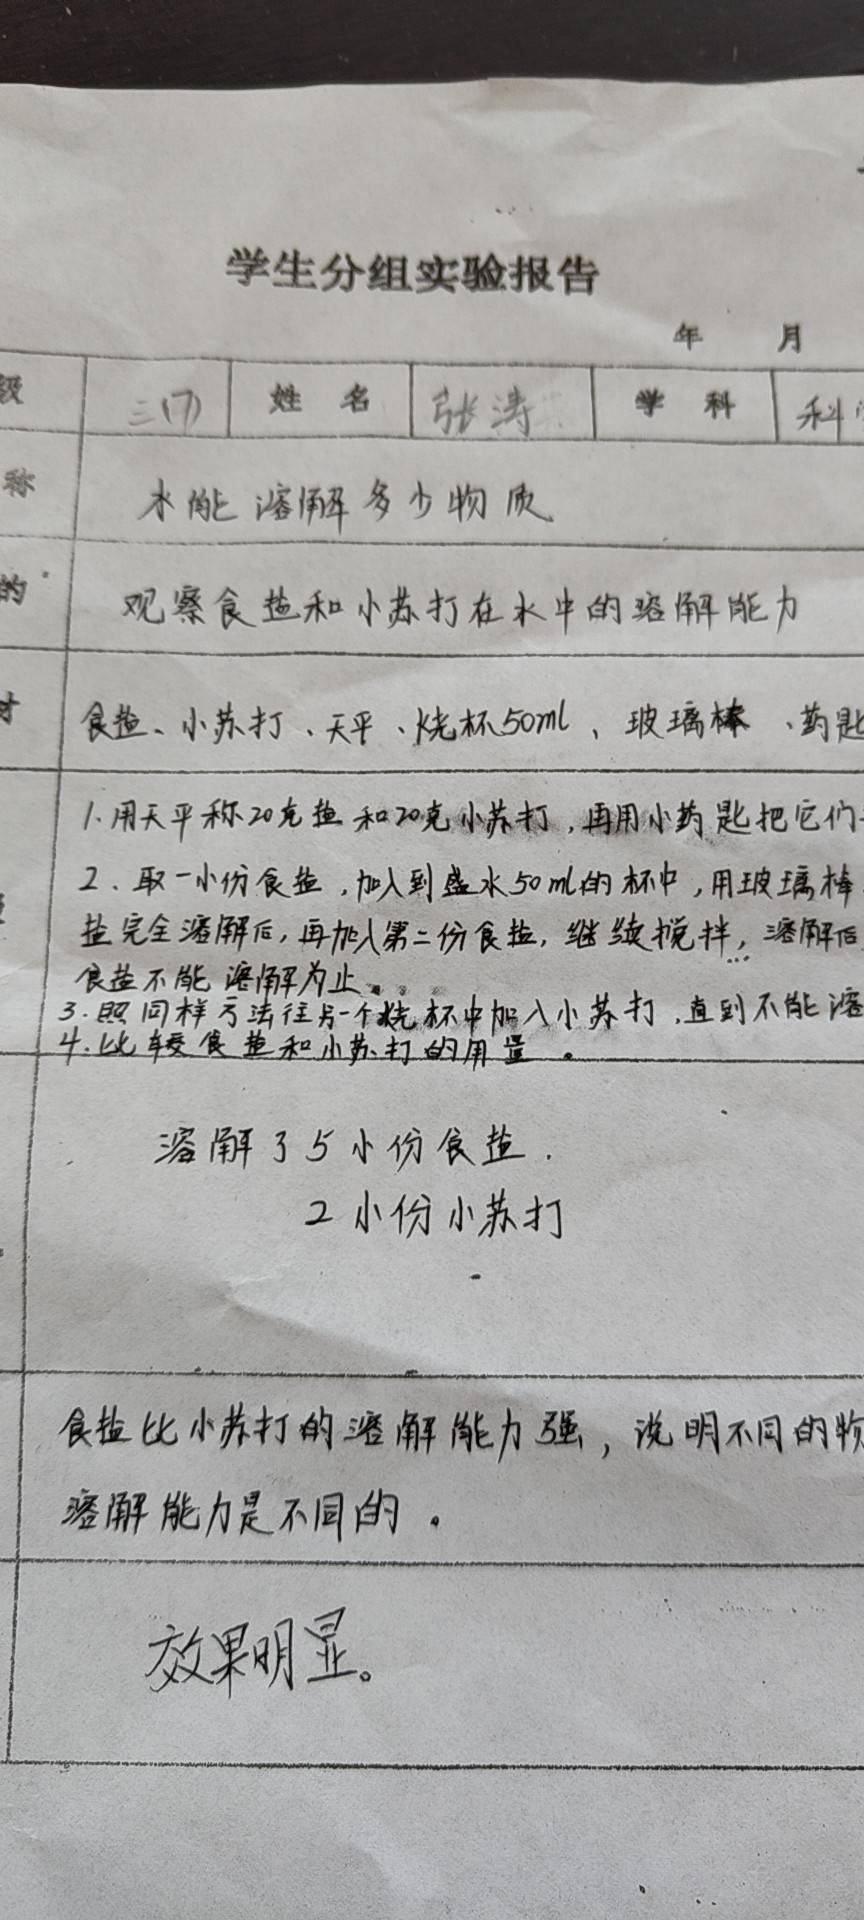 学生分组实验报告
年 月
级 三(7) 姓 名 张涛 学 科 科学
称 水能溶解多少物质
的 观察食盐和小苏打在水中的溶解能力
材 食盐、小苏打、天平、烧杯50ml、玻璃棒、药匙
1.用天平称20克盐和20克小苏打,再用小药匙把它们
2、取一小份食盐,加入到盛水50ml的杯中,用玻璃棒
盐完全溶解后,再加入第二份食盐,继续搅拌,溶解后
食盐不能溶解为止。
3.照同样方法往另一个烧杯中加入小苏打,直到不能溶
4.比较食盐和小苏打的用量。
溶解了5小份食盐.
2小份小苏打
食盐比小苏打的溶解能力强,说明不同的物
溶解能力是不同的。
效果明显。